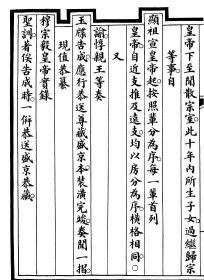 皇帝下至閒散宗室。此十年內所生子女。過繼歸宗
等事。自
顯祖宣皇帝起。按照輩分為序。每一輩首列
皇帝。自近支推及遠支。均以房分為序。橫格相同。○
又
諭惇親王等奏
玉牒告成。應行恭送尊藏盛京本。裝潢完竣。奏聞一摺。
現值恭纂
穆宗毅皇帝實錄
聖訓。著俟告成時。一併恭送盛京恭藏。